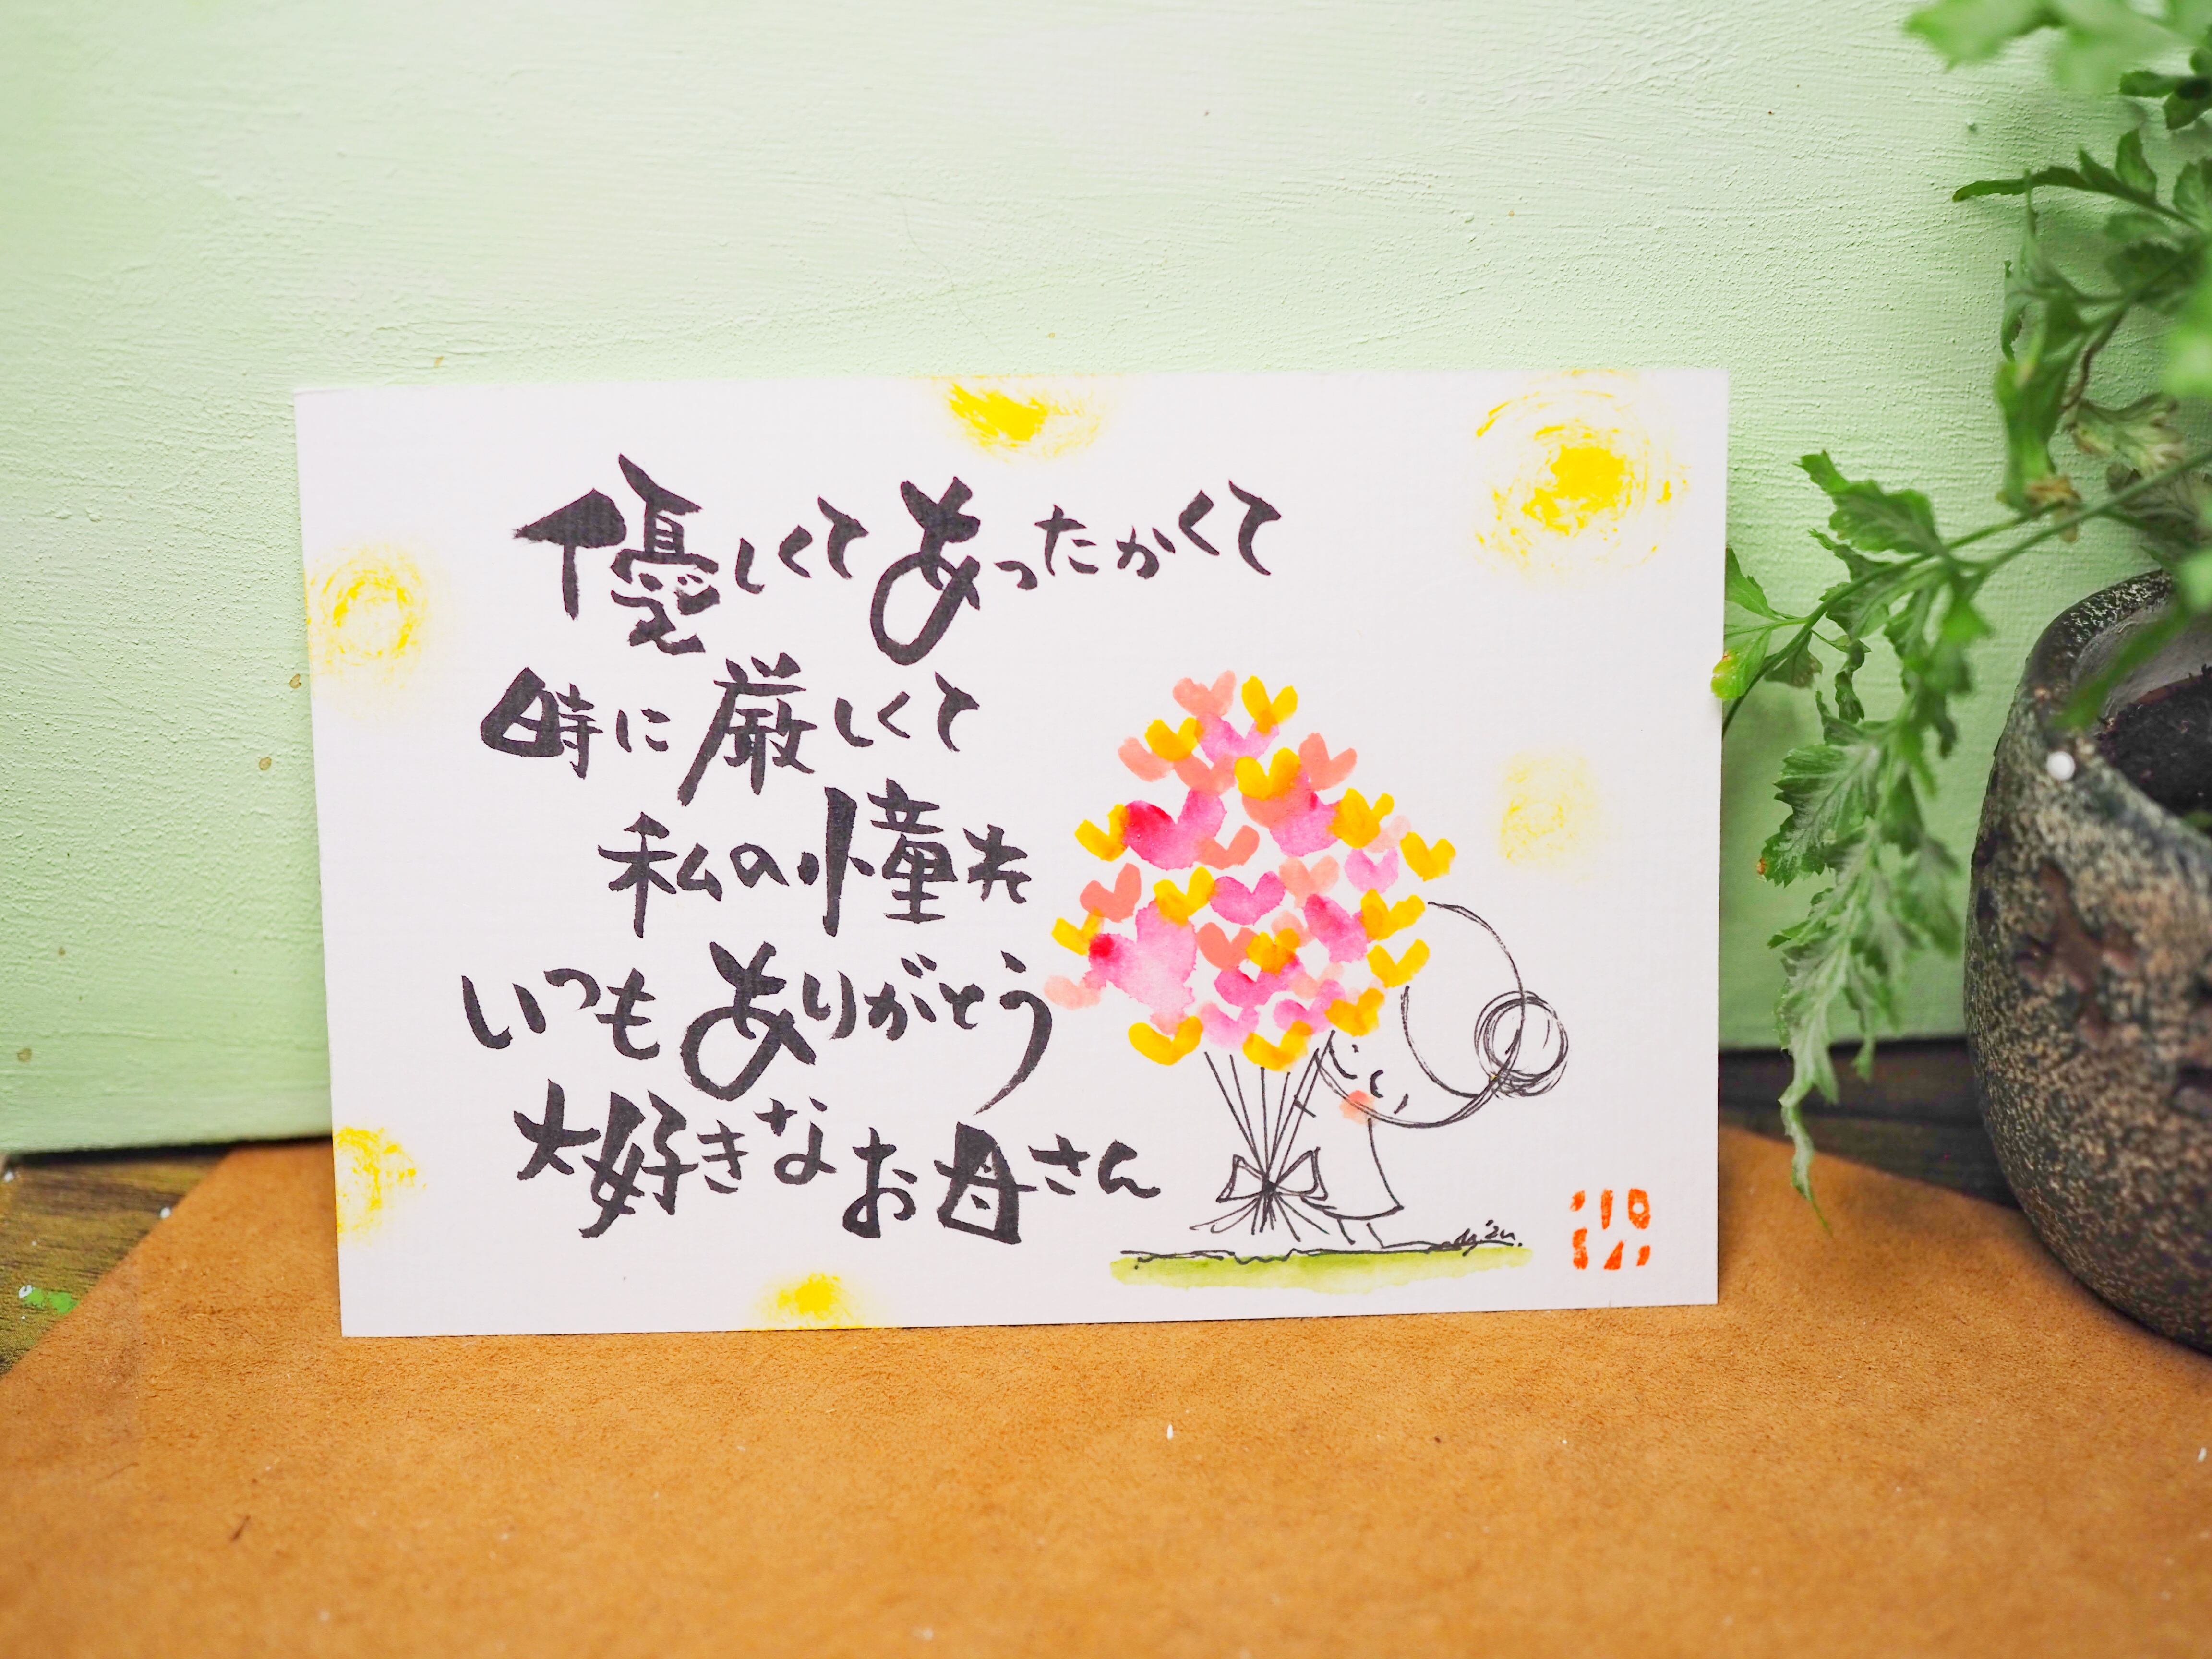 優しくてあったかくて
時に厳しくて
私の憧れ
いつもありがとう
大好きなお母さん